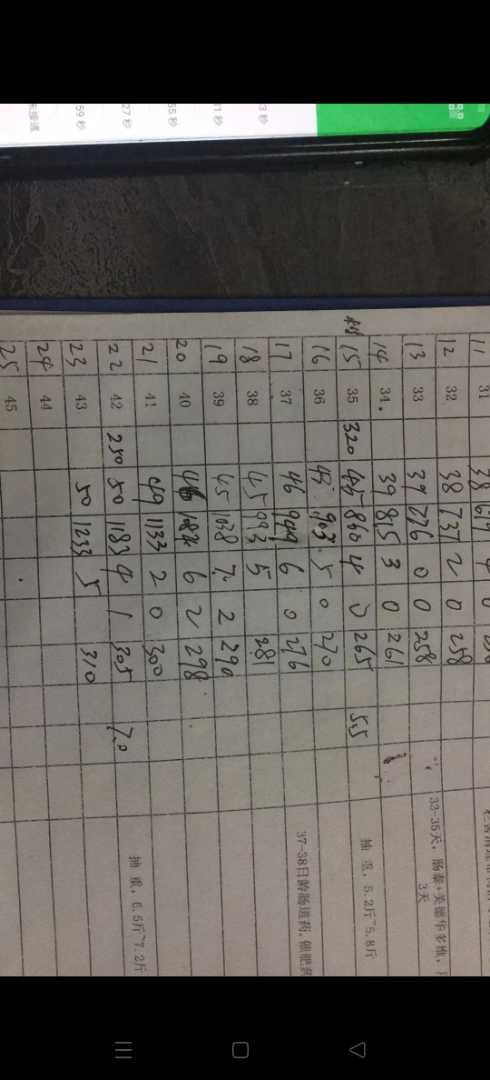 3 秒
1 秒
55 秒
27 秒
59 秒
未接通
11 31 38
12 32 38 737 2 0 258
13 33 37 776 0 0 258
33-35天, 肠泰+美德华多维,
3天
14 34 39 815 3 0 261
15 35 320 45 860 4 0 265 5.5
抽 重, 5.2斤~5.8斤
16 36 43 903 5 0 270
17 37 46 949 6 0 276
37-38日龄肠道药, 催肥
18 38 45 993 5 281
19 39 45 1038 7 2 290
20 40 46 6 2 298
21 41 49 1133 2 0 300
22 42 250 50 1183 4 1 305 7.0
抽 重, 6.5斤~7.2斤
23 43 50 1233 5 310
24 44
25 45